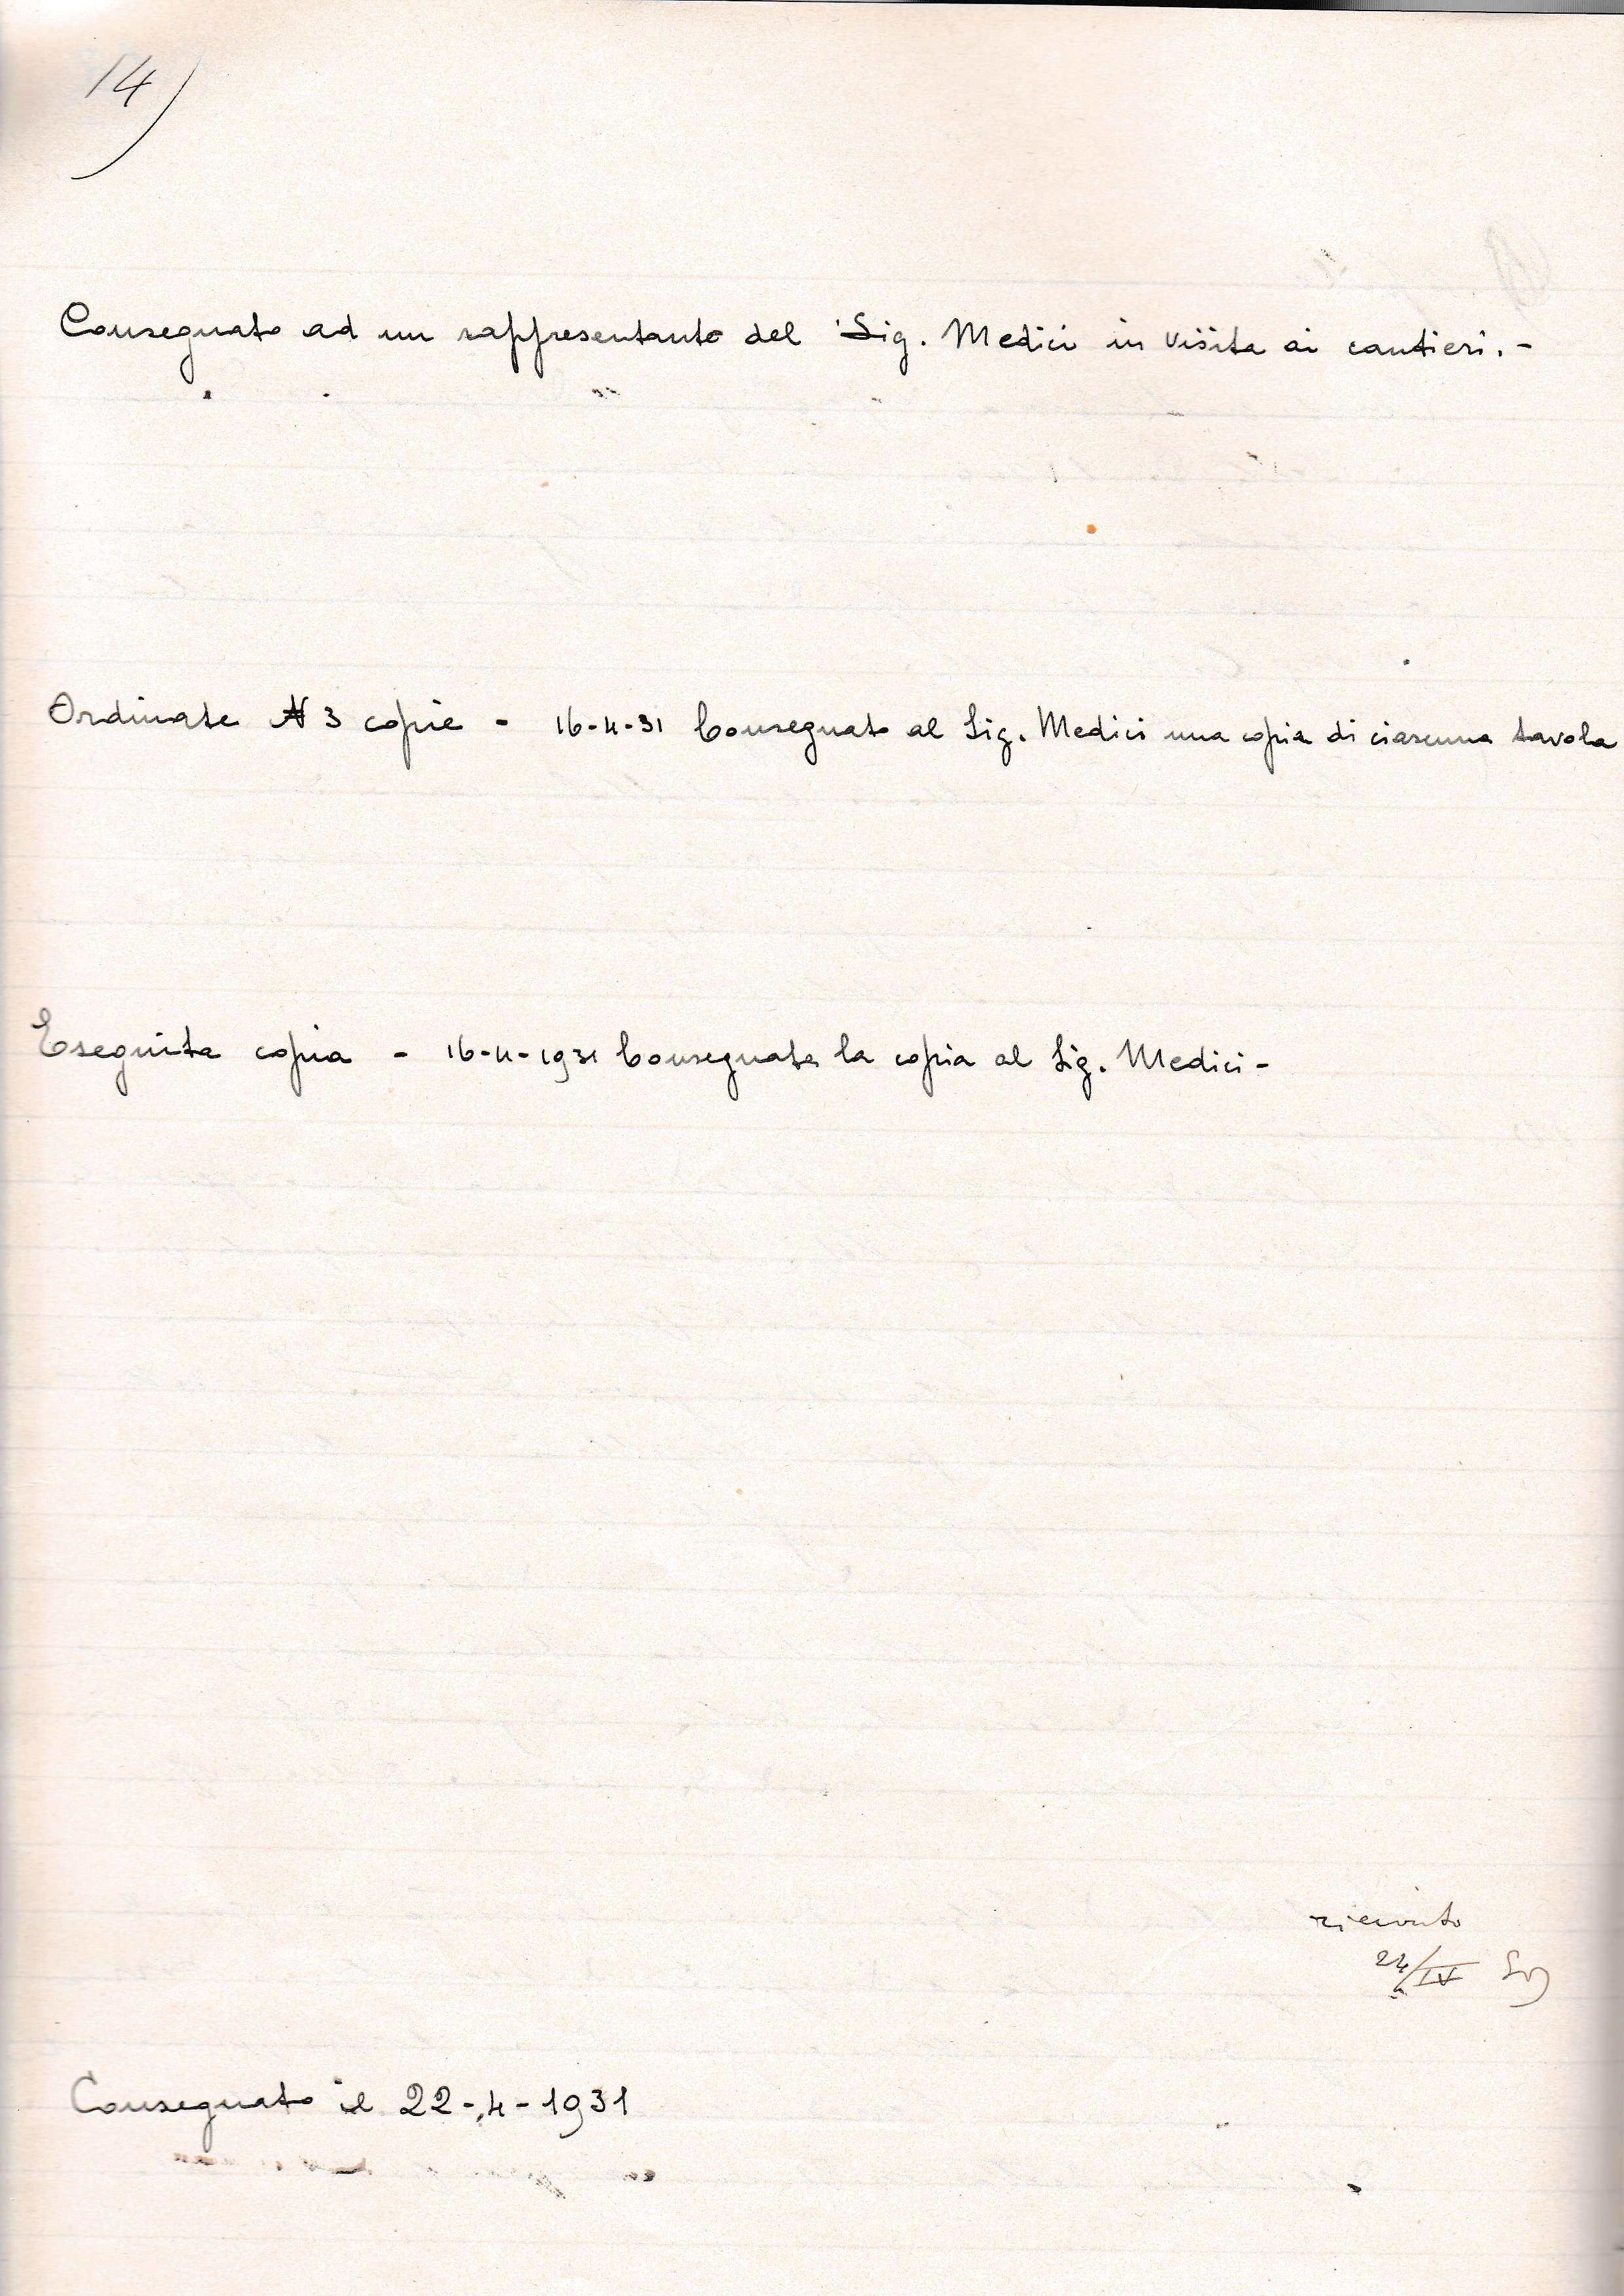 14)
Consegnato ad un rappresentante del Sig. Medici in visita ai cantieri. -
Ordinate N 3 copie - 16-4-31 Consegnato al Sig. Medici una copia di ciascuna tavola
Eseguita copia - 16-4-1931 Consegnata la copia al Sig. Medici -
ricevuto
24/IV
Consegnato il 22-4-1931